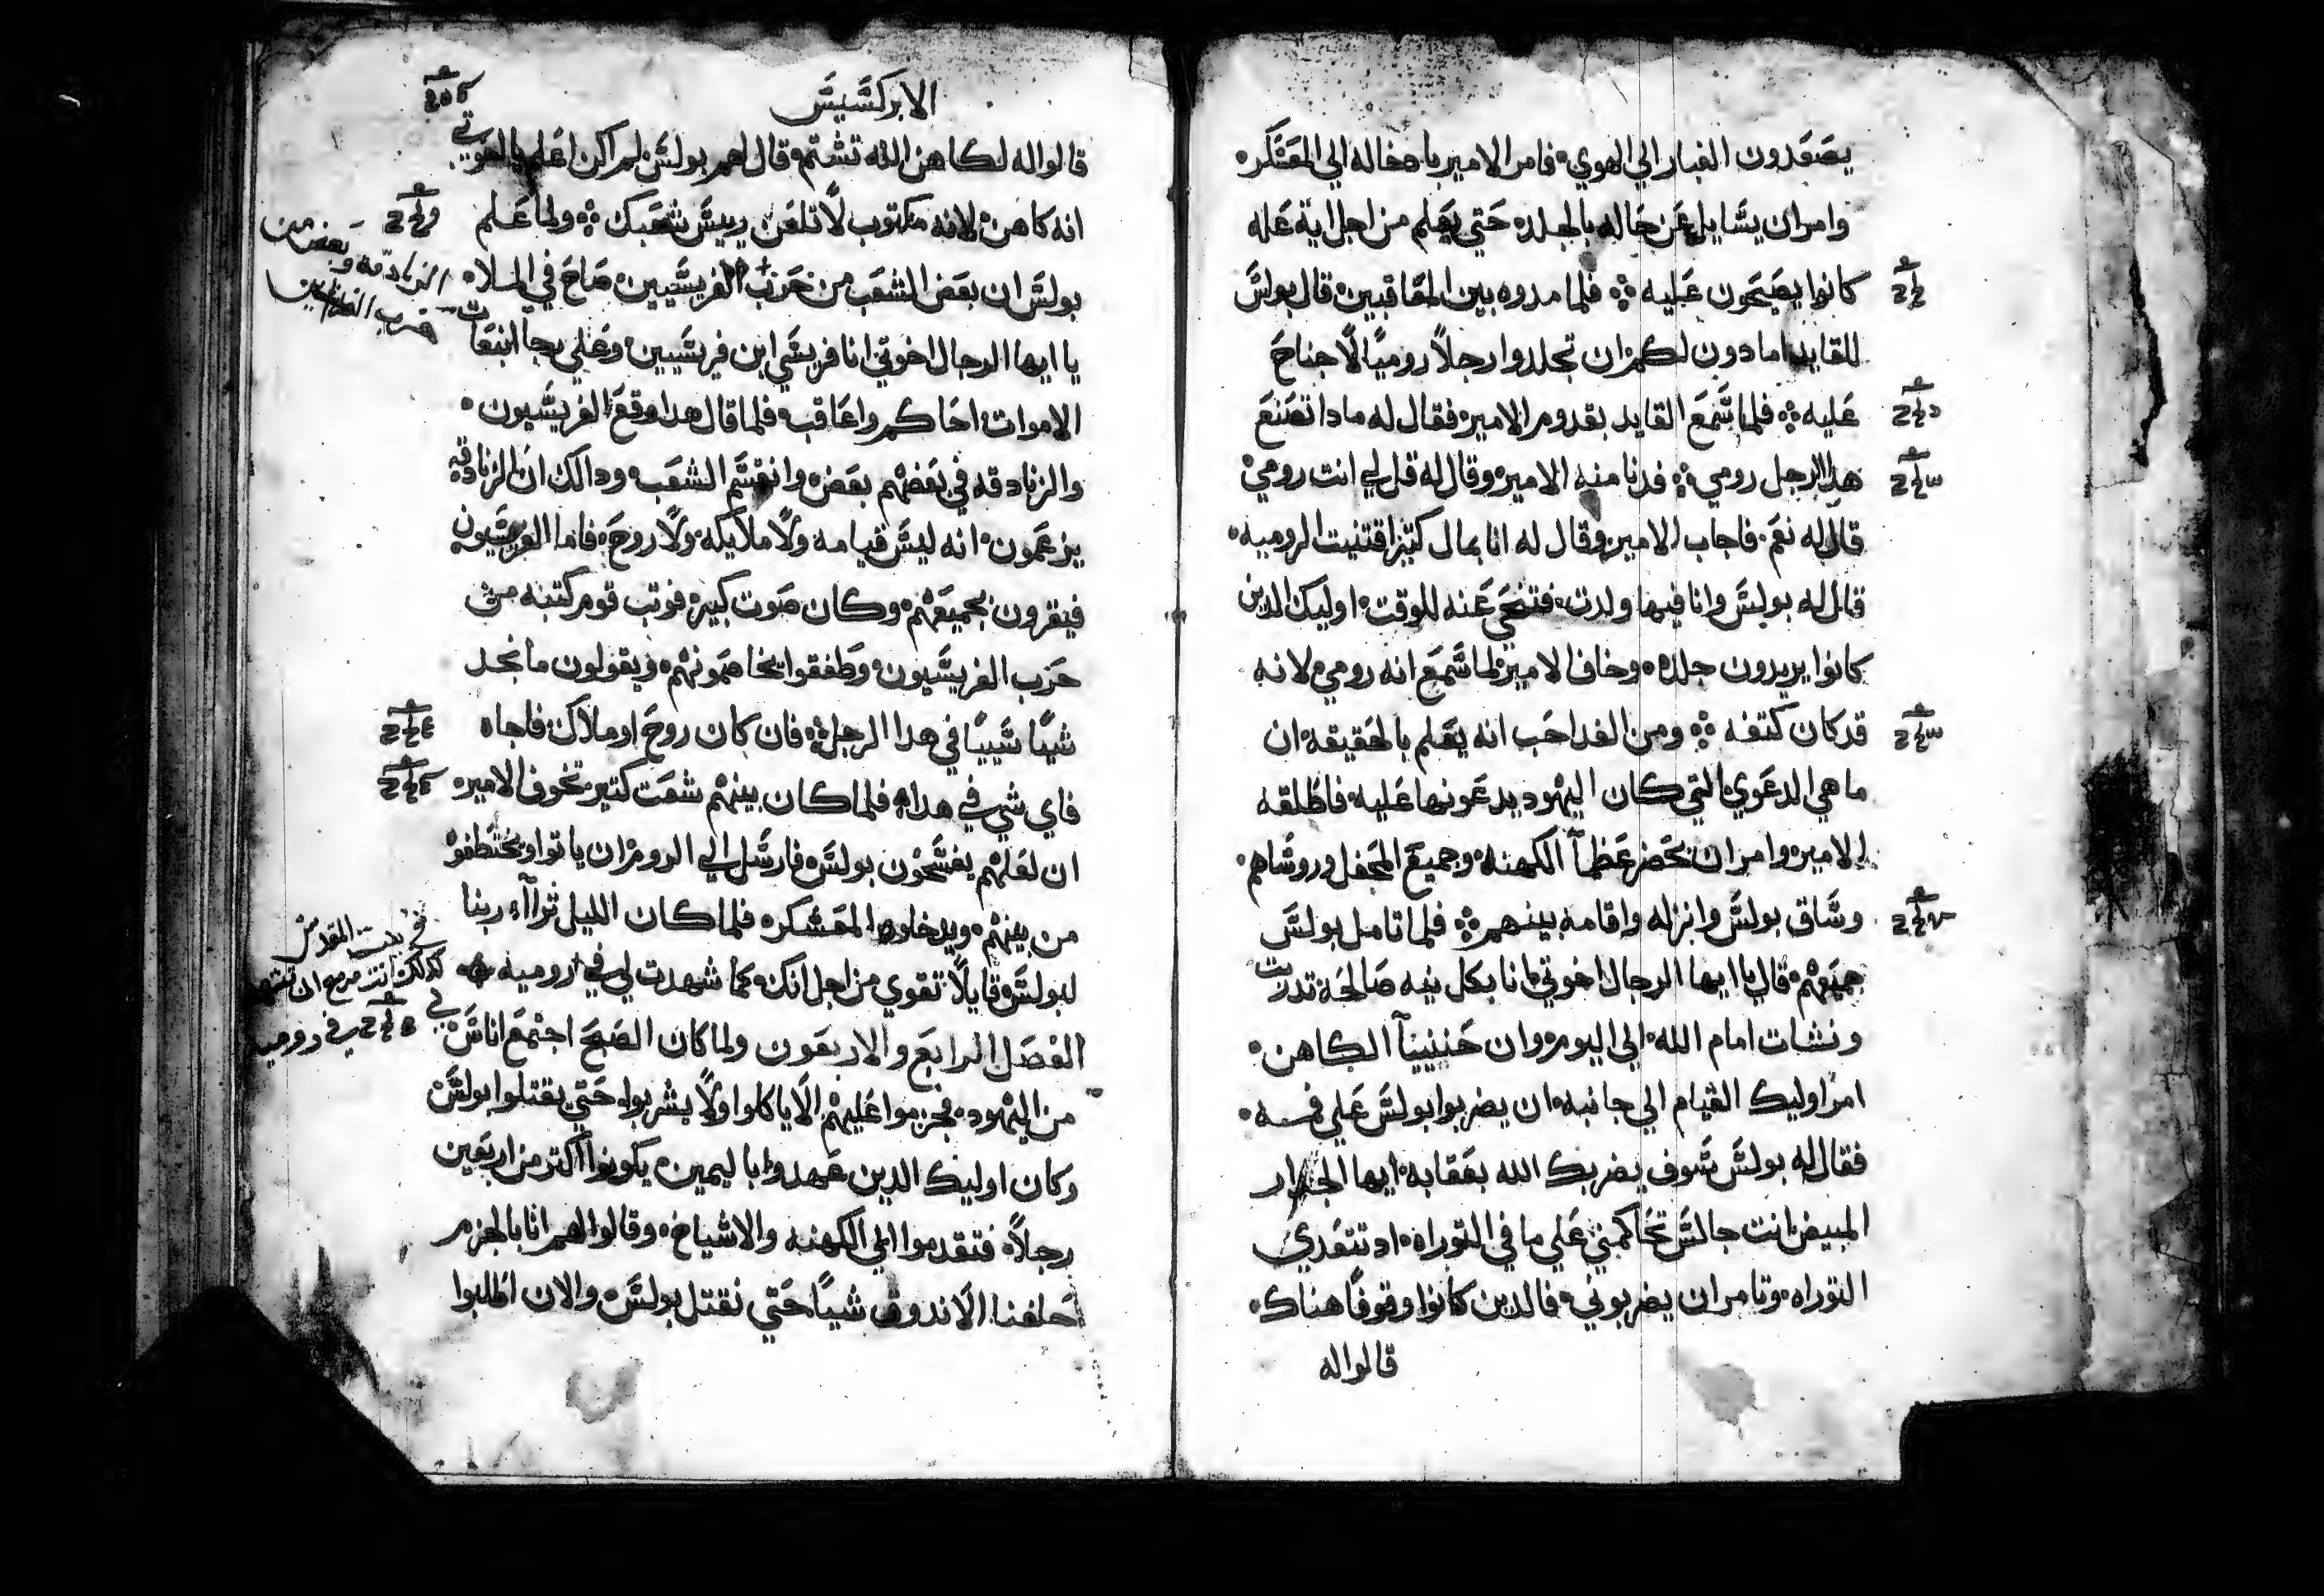 يصَعَدون الغبار الي الهوي۰ فامر الامير بادخاله الي المعَسَّكر۰
وامر ان يسَّايل عَن حَاله بالجلد۰ حَتي يعَلم من اجل اية عَله
كانوا يصَيحَون عَليه ܀ فلما مدوه بين المعَاقبين۰ قال بولسَّ
للقايد امادون لكم۰ ان تجلدوا رجلاً روميًا لاجناحَ
عَليه ܀ فلما سَّمعَ القايد بقدوم الامير۰ فقال له مادا تصَنعَ
هدا الرجل رومي ܀ فدنا منه الامير۰ وقال له قل لي انت رومي۰
قال له نعَم۰ فاجاب الامير۰ وقال له انا بمال كتير اقتنيت الروميه۰
قال له بولسَّ وانا فيها ولدت۰ فتنحَي عَنه للوقت۰ اوليك الدين
كانوا يريدون جلده۰ وخاف الامير۰ لما سَّمعَ انه رومي۰ لانه
قد كان كتفه ܀ ومن الغد احَب انه يعَلم بالحَقيقه۰ ان
ما هي الدعَوي۰ التي كان اليهود يدعَونها عَليه۰ فاطلقه
الامير۰ وامر ان تحَضر عَظمآ الكهنه۰ وجميعَ المحَفل وروسَّاهم۰
وسَّاق بولسَّ وانزله واقامه بينهم ܀ فلما تامل بولسَّ
جميعَهم۰ قال يا ايها الرجال اخوتي۰ انا بكل نيه صَالحَه تدربت
ونشات امام الله۰ الي اليوم۰ وان حَننييآ الكاهن۰
امر اوليك القيام الي جانبه۰ ان يضربوا بولسَّ عَلي فمه۰
فقال له بولسَّ سَّوف يضربك الله بعَقابه۰ ايها الجدار
المبيض۰ انت جالسَّ تحَاكمني عَلي ما في التوراه۰ اد تتعَدي
التوراه۰ وتامر ان يضربوني۰ فالدين كانوا وقوفًا هناك۰
قالواله
الابركسَّيسَّ
قالواله لكاهن الله تشتم۰ قال لهم بولسَّ لم اكن اعَلم يا اخوتي
انه كاهن۰ لانه مكتوب لاتلعَن رييسَّ شعَبك ܀ ولما عَلم
بولسَّ ان بعَض الشعَب من حَزب الفريسَّيين۰ صَاحَ في الملاه
يا ايها الرجال اخوتي۰ انا فريسَّي ابن فريسَّيين۰ وعَلي رجا انبعَات
الاموات۰ احَاكم واعَاقب۰ فلما قال هدا وقعَ الفريسَّيون۰
والزنادقه في بعَضهم بعَض۰ وانقسَّم الشعَب۰ ودالك ان الزنادقه
يزعَمون۰ انه ليسَّ قيامه۰ ولا ملايكه۰ ولا روحَ۰ فاما الفريسَّيون
فيقرون بجميعَهم۰ وكان صَوت كبير۰ فوتب قوم كتبه من
حَزب الفريسَّيون۰ وطفقوا يخاصَمونهم۰ ويقولون ما نجد
شيًا سَّييًا في هدا الرجل ܀ فان كان روحَ او ملاك۰ فاجاه
فاي شي في هدا ܀ فلما كان بينهم شعَت كتير۰ تخوف الامير۰
ان لعَلهم يفسَّخون بولسَّ۰ فارسَّل الي الروم۰ ان ياتوا ويختطفوْ
من بينهم۰ ويدخلوه المعَسَّكر۰ فلما كان الليل تراآء ربنا
لبولسَّ قايلاً تقوي من اجل انك۰ كما شهدت لي في
روميه
الفصَل الرابعَ والاربعَون ولما كان الصَبحَ اجتمعَ اناسَّ
من اليهود۰ فجزموا عَليهم الا ياكلوا ولا يشربوا۰ حَتي يقتلوا بولسَّ
وكان اوليك الدين عَهدوا باليمين۰ يكونوا اكتر من اربعَين
رجلاً۰ فتقدموا الي الكهنه والاشياخ۰ وقالوا لهم انا بالجزم
حَلفنا الا ندوق شيًا حَتي نقتل بولسَّ۰ والان اطلبوا
الزنادقه وبعَض من
حزب الفريسيين
في بيت المقدس
كدلك انت مزمع ان تشهد
لي في روميه